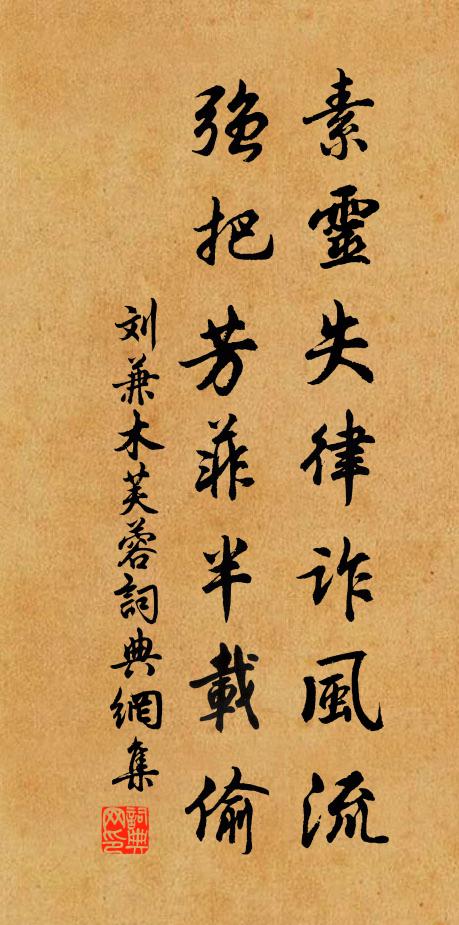 素靈失律詐風流
強把芳菲半載偷
刘兼木芙蓉詞典網集
詞典网印